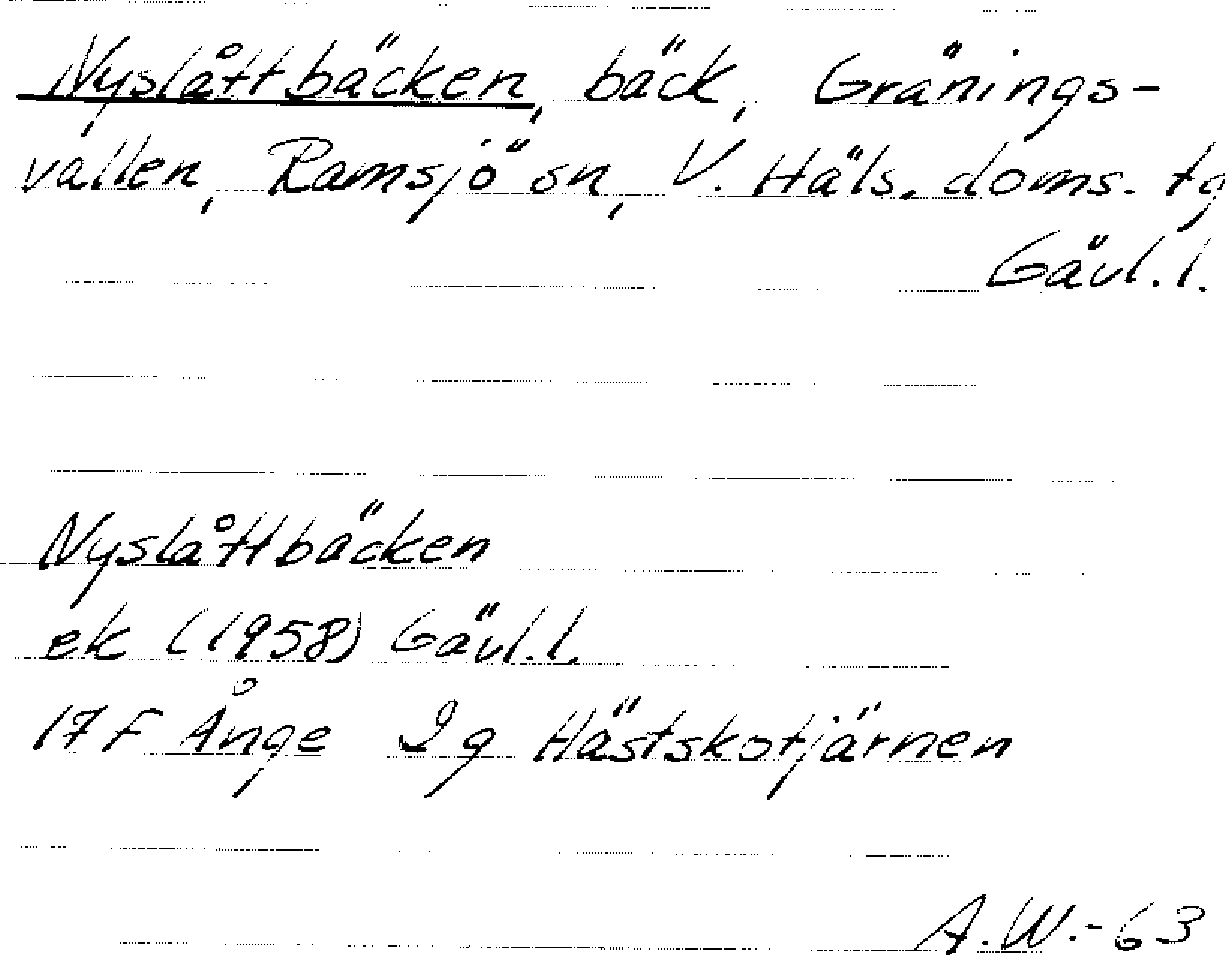 Nyslåttbäcken, bäck, Gränings-
vallen, Ramsjö sn, V. Häls. doms. tg
Gävl.l.
Nyslåttbäcken
ek (1958) Gävl.l.
17F Ånge 2g Hästskotjärnen
A.W.-63